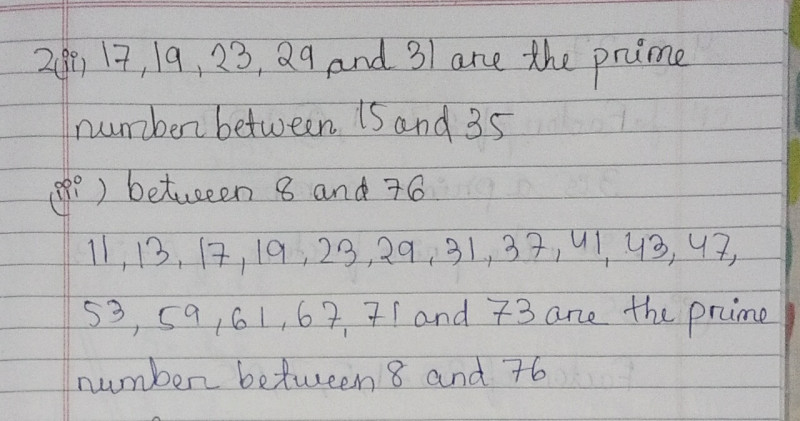 2(ii) 17, 19, 23, 29 and 31 are the prime
number between 15 and 35
(iii) between 8 and 76
11, 13, 17, 19, 23, 29, 31, 37, 41, 43, 47,
53, 59, 61, 67, 71 and 73 are the prime
number between 8 and 76